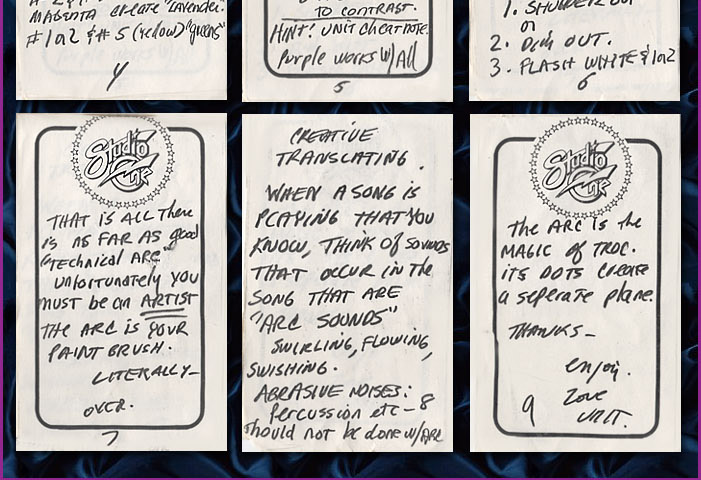 MAGENTA CREATE "LAVENDER.
#1or2 & #5 (yellow) "greens"
4
TO CONTRAST.
HINT! UNIT CHEATNOTE.
Purple works w/All
5
or
2. Dim OUT.
3. FLASH WHITE #1or2
6
Studio
THAT IS ALL There
is AS FAR AS good
"Technical ARC"
unfortunately you
must be an ARTIST
THE ARC IS YOUR
PAINT BRUSH.
LITERALLY—
OVER.
7
CREATIVE
TRANSLATING.
WHEN A SONG IS
PLAYING THAT YOU
KNOW, THINK of sounds
THAT occur in the
SONG THAT ARE
"ARC SOUNDS"
SWIRLING, FLOWING,
SWISHING.
ABRASIVE NOISES:
Percussion etc – 8
should not be done w/ARC
Studio
the ARC is the
MAGIC of TROC.
ITS DOTS Create
a seperate plane.
THANKS—
enjoy.
Love
9